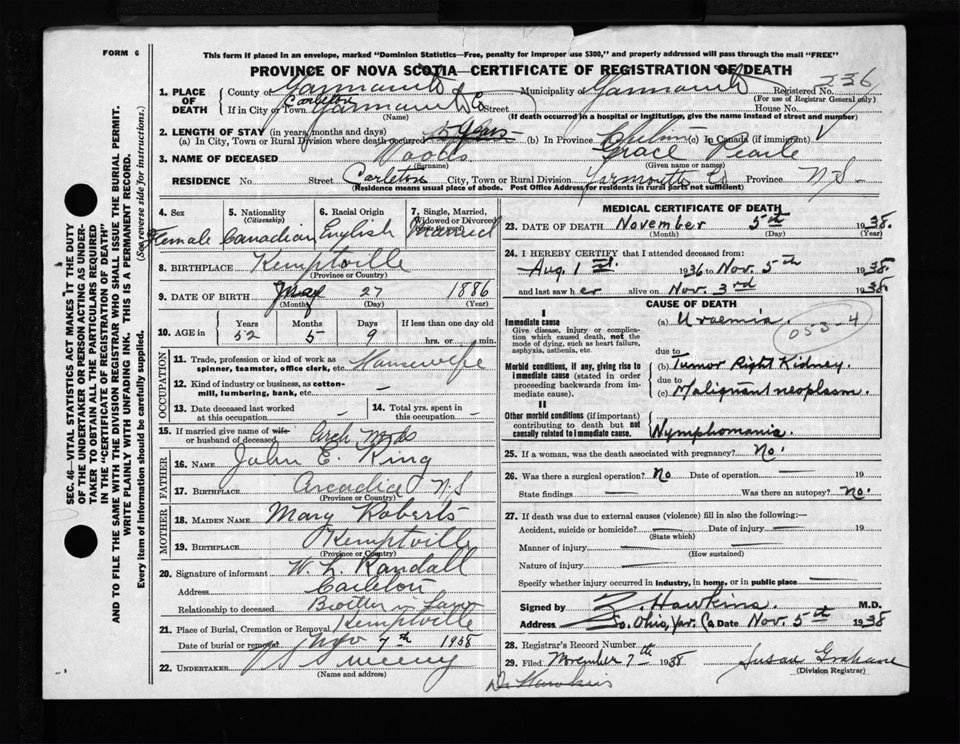 FORM 6
This form if placed in an envelope, marked "Dominion Statistics—Free, penalty for improper use $300," and properly addressed will pass through the mail "FREE"
PROVINCE OF NOVA SCOTIA—CERTIFICATE OF REGISTRATION OF DEATH
236
1. PLACE OF DEATH County of Yarmouth Municipality of Yarmouth Registered No.
(For use of Registrar General only)
Carleton
If in City or Town Yarmouth Co Street House No.
(Name) (If death occurred in a hospital or institution, give the name instead of street and number)
2. LENGTH OF STAY (in years, months and days)
(a) In City, Town or Rural Division where death occurred 5 Years (b) In Province (c) In Canada (if immigrant)
3. NAME OF DECEASED Woods Grace Pearle
(Surname) (Given name or names)
RESIDENCE No. Street Carleton City, Town or Rural Division Yarmouth Co Province N.S.
(Residence means usual place of abode. Post Office Address for residents in rural parts not sufficient)
4. Sex 5. Nationality (Citizenship) 6. Racial Origin 7. Single, Married, Widowed or Divorced
Female Canadian English Married
8. BIRTHPLACE Kemptville
(Province or Country)
9. DATE OF BIRTH May 27 1886
(Month) (Day) (Year)
10. AGE in Years Months Days If less than one day old
52 5 9 hrs. or min.
OCCUPATION
11. Trade, profession or kind of work as spinner, teamster, office clerk, etc. Housewife
12. Kind of industry or business, as cotton-mill, lumbering, bank, etc. —
13. Date deceased last worked at this occupation — 14. Total yrs. spent in this occupation —
15. If married give name of wife or husband of deceased Arch Woods
FATHER
16. NAME John E. King
17. BIRTHPLACE Arcadia N.S
(Province or Country)
MOTHER
18. MAIDEN NAME Mary Roberts
19. BIRTHPLACE Kemptville
(Province or Country)
20. Signature of informant W. L. Randall
Address Carleton
Relationship to deceased Brother in Law
21. Place of Burial, Cremation or Removal Kemptville
Date of burial or removal Nov 7th 1938
22. UNDERTAKER Sweeny
(Name and address)
MEDICAL CERTIFICATE OF DEATH
23. DATE OF DEATH November 5th 1938.
(Month) (Day) (Year)
24. I HEREBY CERTIFY that I attended deceased from:
Aug. 1st. 1936 to Nov. 5th 1938.
and last saw her alive on Nov. 3rd 1938
CAUSE OF DEATH
I
Immediate cause (a) Uraemia.
Give disease, injury or complication which caused death, not the mode of dying, such as heart failure, asphyxia, asthenia, etc
053-4
due to
Morbid conditions, if any, giving rise to immediate cause (stated in order proceeding backwards from immediate cause).
(b) Tumor Right Kidney.
due to
(c) Malignant neoplasm.
II
Other morbid conditions (if important) contributing to death but not causally related to immediate cause.
Nymphomania.
25. If a woman, was the death associated with pregnancy? No.
26. Was there a surgical operation? No Date of operation — 19
State findings — Was there an autopsy? No.
27. If death was due to external causes (violence) fill in also the following:—
Accident, suicide or homicide? — Date of injury — 19
(State which)
Manner of injury —
(How sustained)
Nature of injury —
Specify whether injury occurred in industry, in home, or in public place —
Signed by Z. Hawkins. M.D.
Address So. Ohio, Yar. Co Date Nov. 5th 1938
28. Registrar's Record Number
29. Filed November 7th 1938 Susan Grahame
(Division Registrar)
Dr Hawkins
SEC. 46—VITAL STATISTICS ACT MAKES IT THE DUTY
OF THE UNDERTAKER OR PERSON ACTING AS UNDERTAKER
TO OBTAIN ALL THE PARTICULARS REQUIRED
IN THE "CERTIFICATE OF REGISTRATION OF DEATH"
AND TO FILE THE SAME WITH THE DIVISION REGISTRAR WHO SHALL ISSUE THE BURIAL PERMIT.
WRITE PLAINLY WITH UNFADING INK. THIS IS A PERMANENT RECORD.
Every item of information should be carefully supplied. (See reverse side for instructions.)